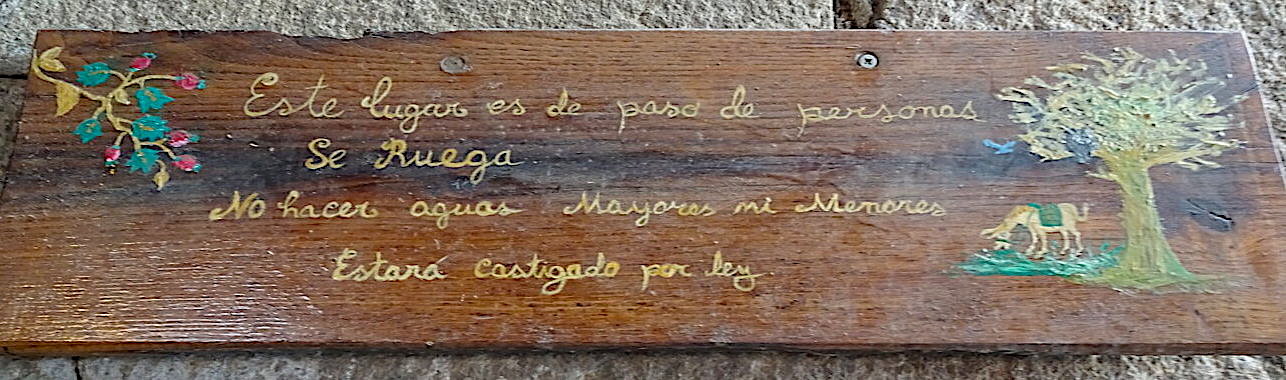 Este lugar es de paso de personas
Se Ruega
No hacer aguas Mayores ni Menores
Estará castigado por ley